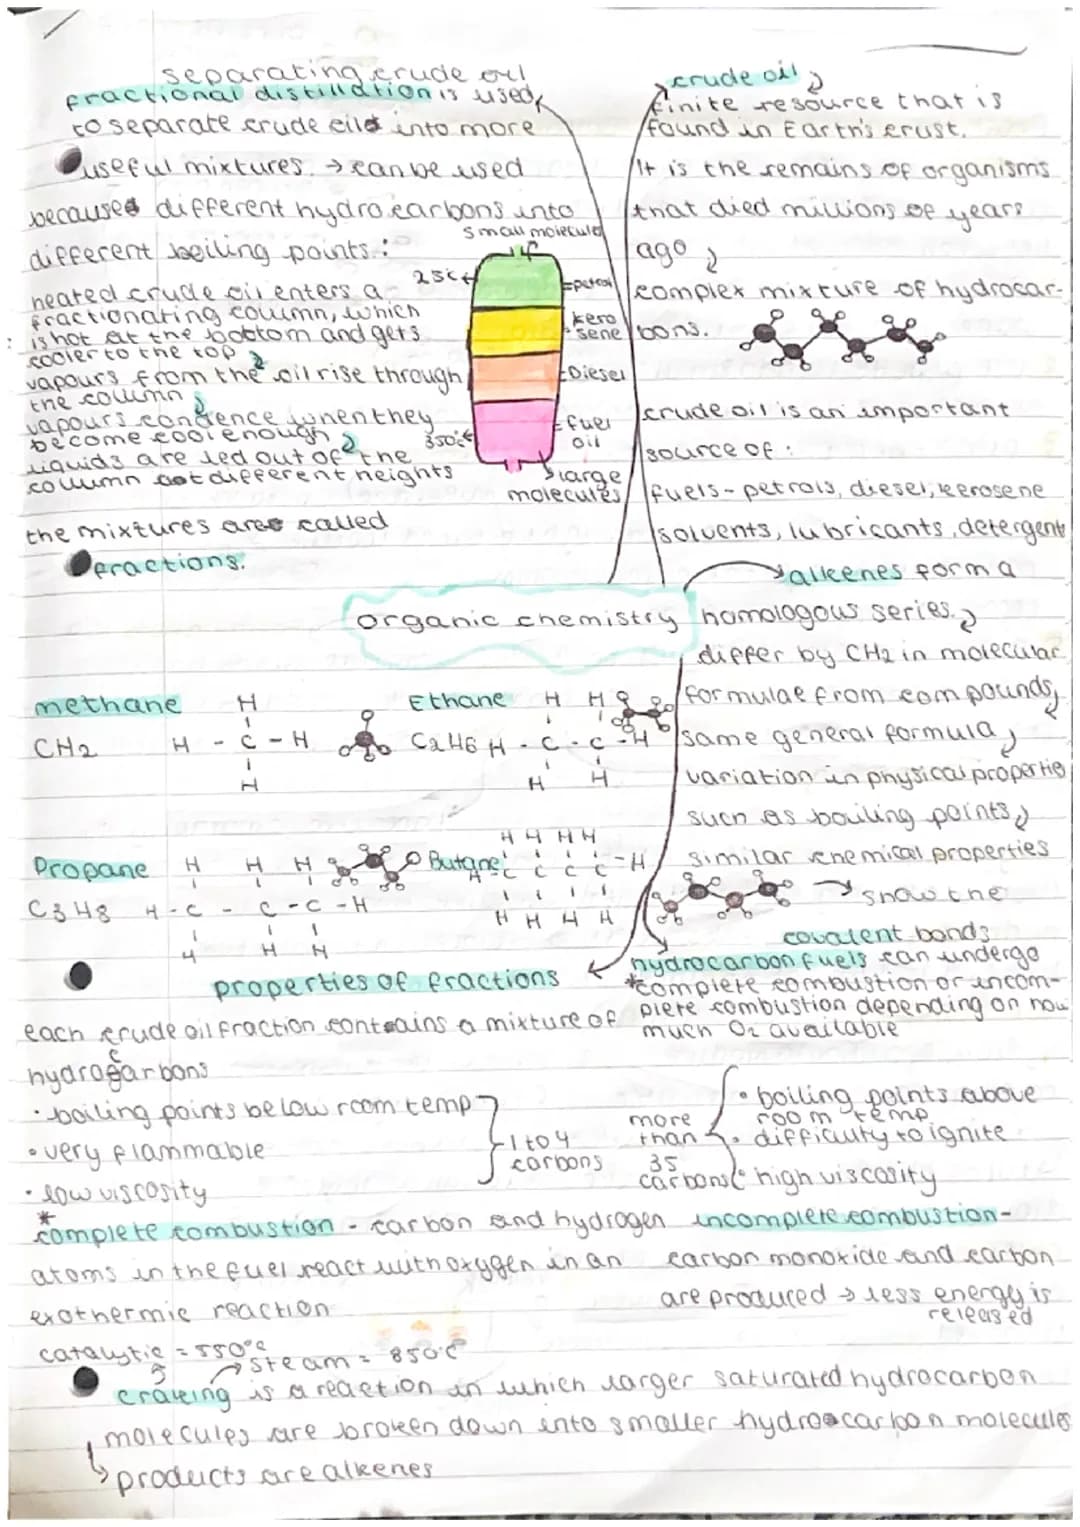 separating crude oil
fractional distillation is used
to separate crude oils into more
useful mixtures → can be used
because different hydrocarbons into
different boiling points:
heated crude oil enters a
fractionating column, which
is hot at the bottom and gets
cooler to the top
vapours from the oil rise through
the column
vapours condence when they
become cool enough
liquids are led out of the
column at different heights
the mixtures are called
fractions.
small molecule
25°C
petrol
kero
sene
Diesel
fuel
oil
350°C
large
molecules
crude oil
finite resource that is
found in Earth's crust.
It is the remains of organisms
that died millions of years
ago
complex mixture of hydrocar-
bons.
crude oil is an important
source of :
fuels - petrols, diesel, kerosene
solvents, lubricants, detergent
organic chemistry
alkenes form a
homologous series
differ by CH2 in molecular
formulae from compounds
same general formula
variation in physical propertie
such as boiling points
similar chemical properties
show the
covalent bonds
methane
CH2
H
H - C - H
H
Ethane
C2H6
H H
H - C - C - H
H H
Propane
C3H8
H H H
H - C - C - C - H
H H H
Butane
H H H H
H - C C C C - H
H H H H
hydrocarbon fuels can undergo
*complete combustion or incom-
plete combustion depending on how
much O2 available
properties of fractions
each crude oil fraction contains a mixture of
hydrocarbons
• boiling points below room temp
• very flammable
• low viscosity
1 to 4
carbons
more
than
35
carbons
• boiling points above
room temp
• difficulty to ignite
• high viscosity
*
complete combustion - carbon and hydrogen
atoms in the fuel react with oxygen in an
exothermic reaction
incomplete combustion-
carbon monoxide and carbon
are produced → less energy is
released
catalytic = 550°C
steam = 850°C
craking is a reaction in which larger saturated hydrocarbon
molecules are broken down into smaller hydrocarbon molecules
products are alkenes